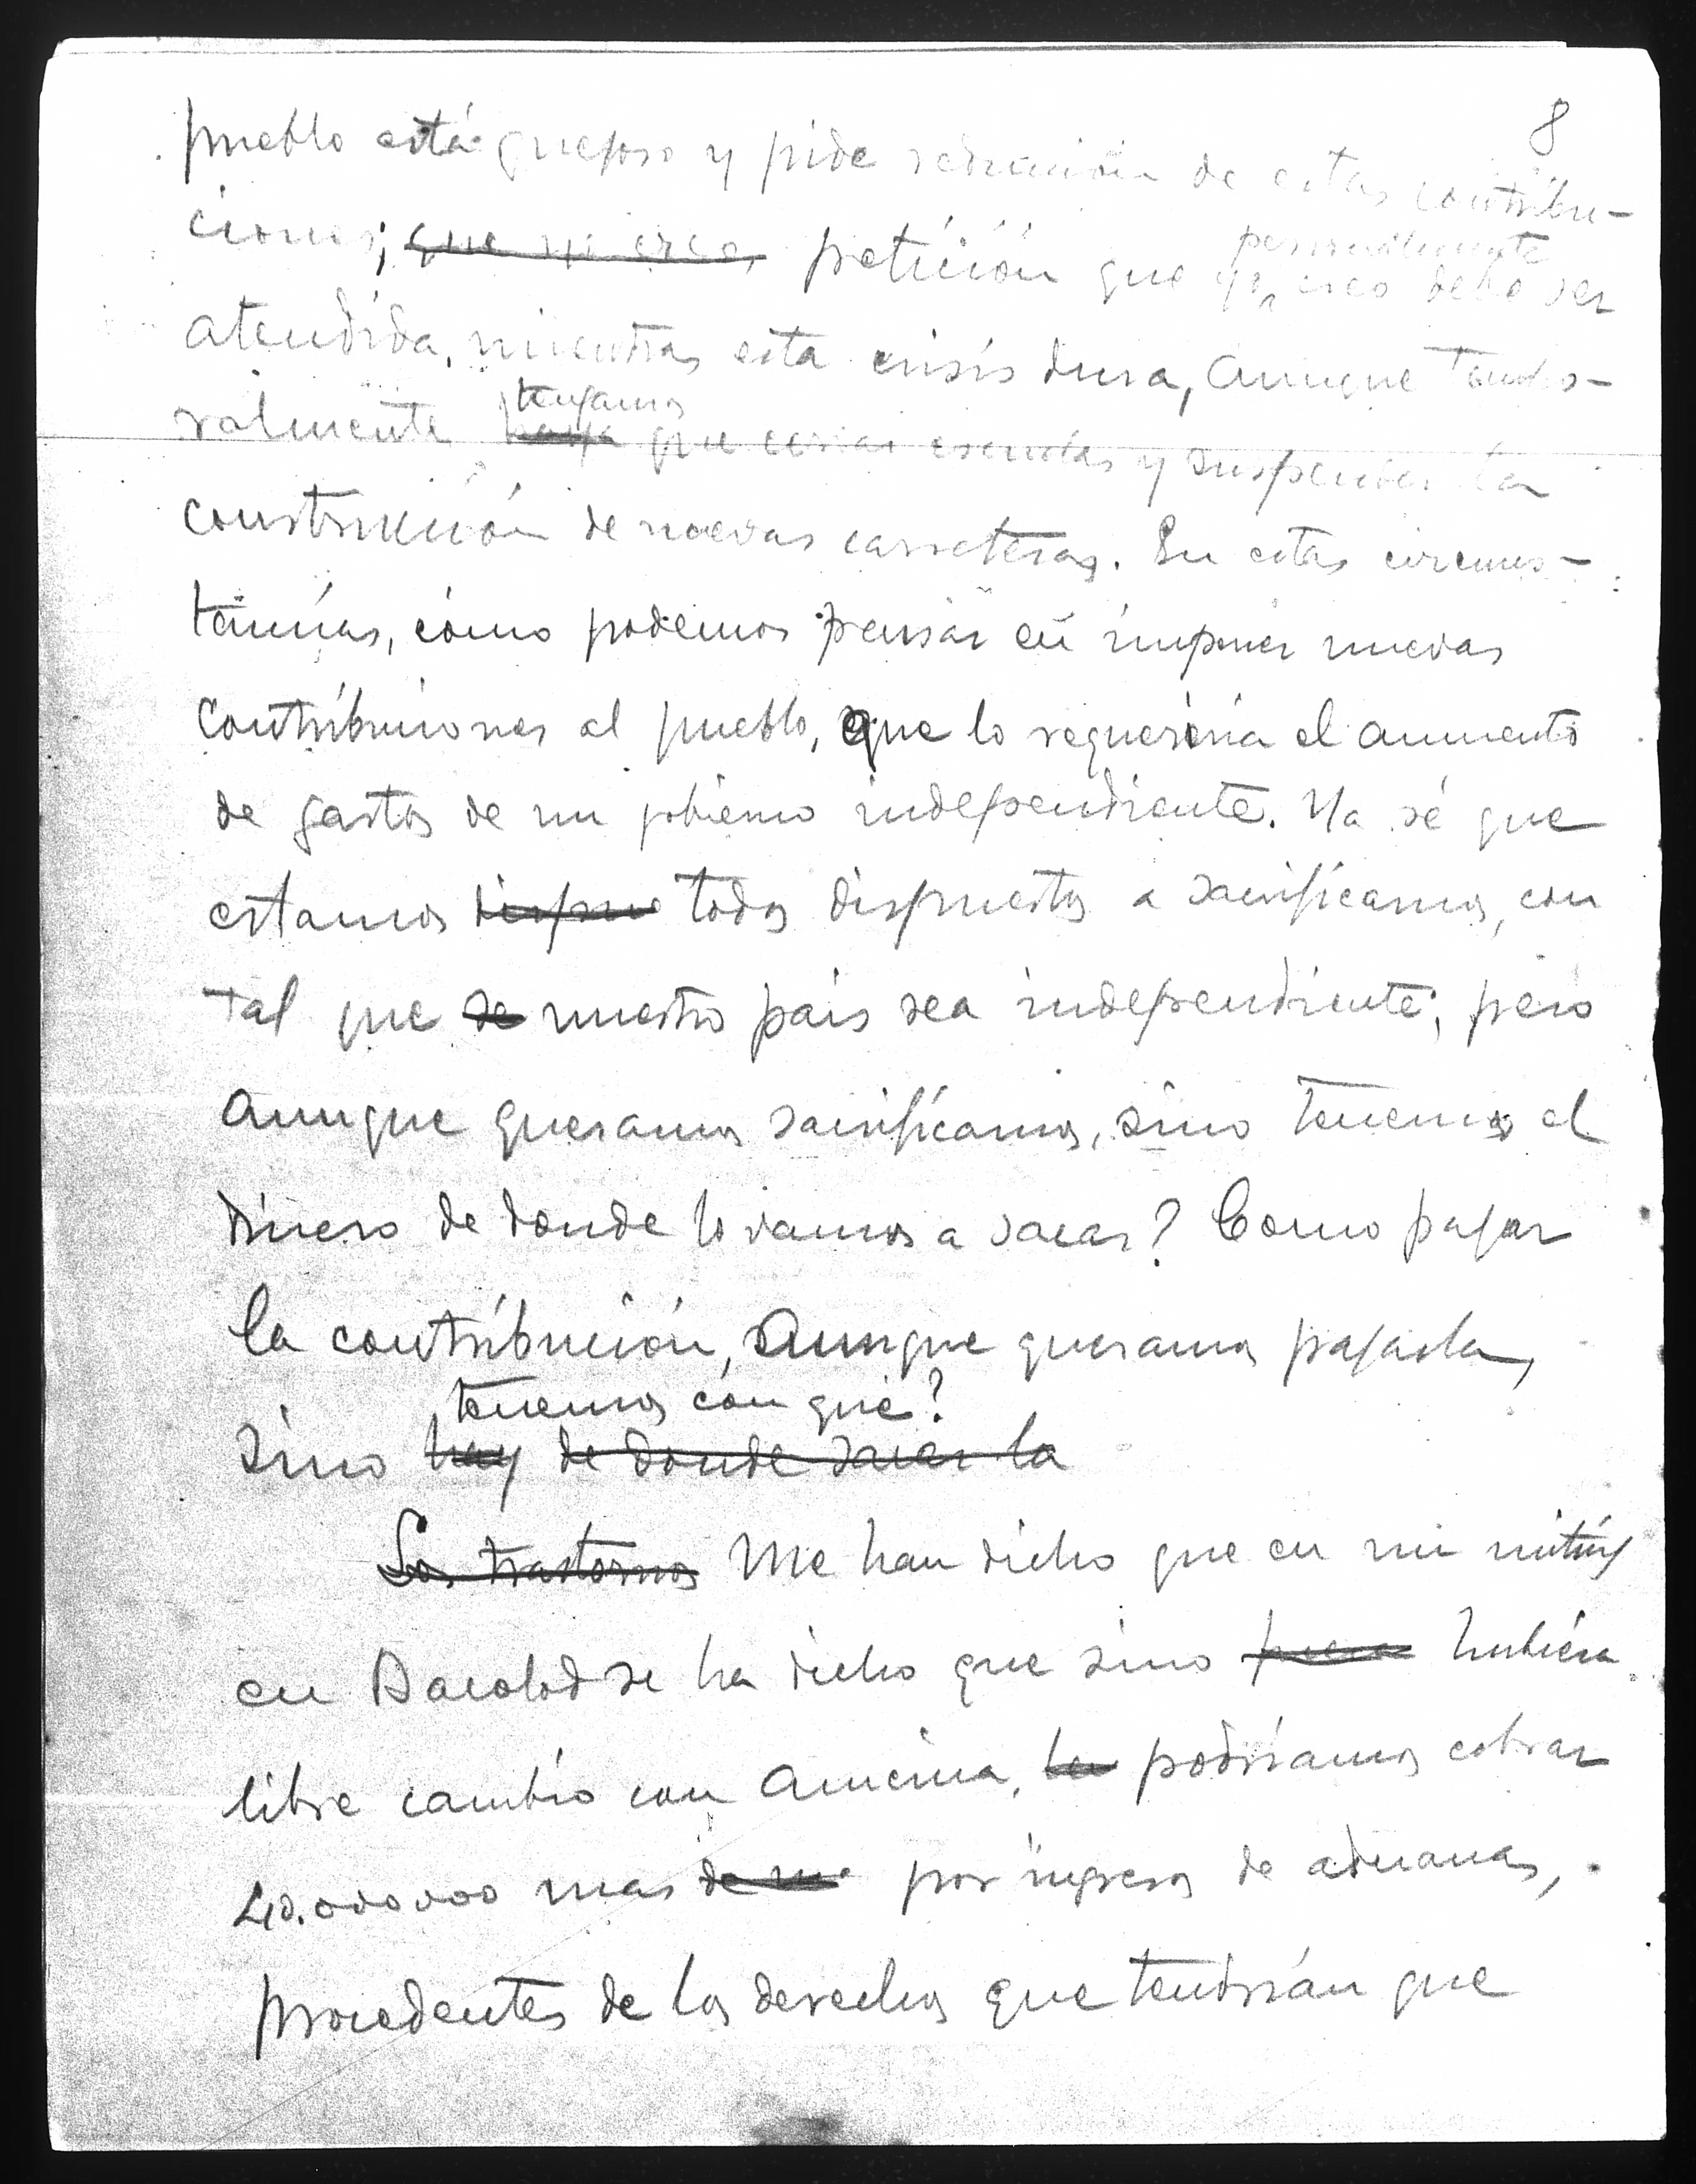 8
pueblo está quejoso y pide reducción de estas contribu-
ciones; que yo creo petición que yo personalmente creo debe ser
atendida, mientras esta crisis dura, aunque tempo-
ralmente haya tengamos que cerrar escuelas y suspender la
construcción de nuevas carreteras. En estas circuns-
tancias, cómo podemos pensar en imponer nuevas
contribuciones al pueblo, que lo requeriria el aumento
de gastos de un gobierno independiente. Ya sé que
estamos dispue todos dispuestos a sacrificarnos, con
tal que se nuestro pais sea independiente; pero
aunque queramos sacrificarnos, sino tenemos el
dinero de donde lo vamos a sacar? Como pagar
la contribución, aunque queramos pagarla,
sino hay de donde sacar la tenemos con qué?
Los trastornos Me han dicho que en un miting
en Bacolod se ha dicho que sino fuera hubiera
libre cambio con America, podriamos cobrar
40.000000 mas de por ingresos de aduanas,
procedentes de los derechos que tendrián que